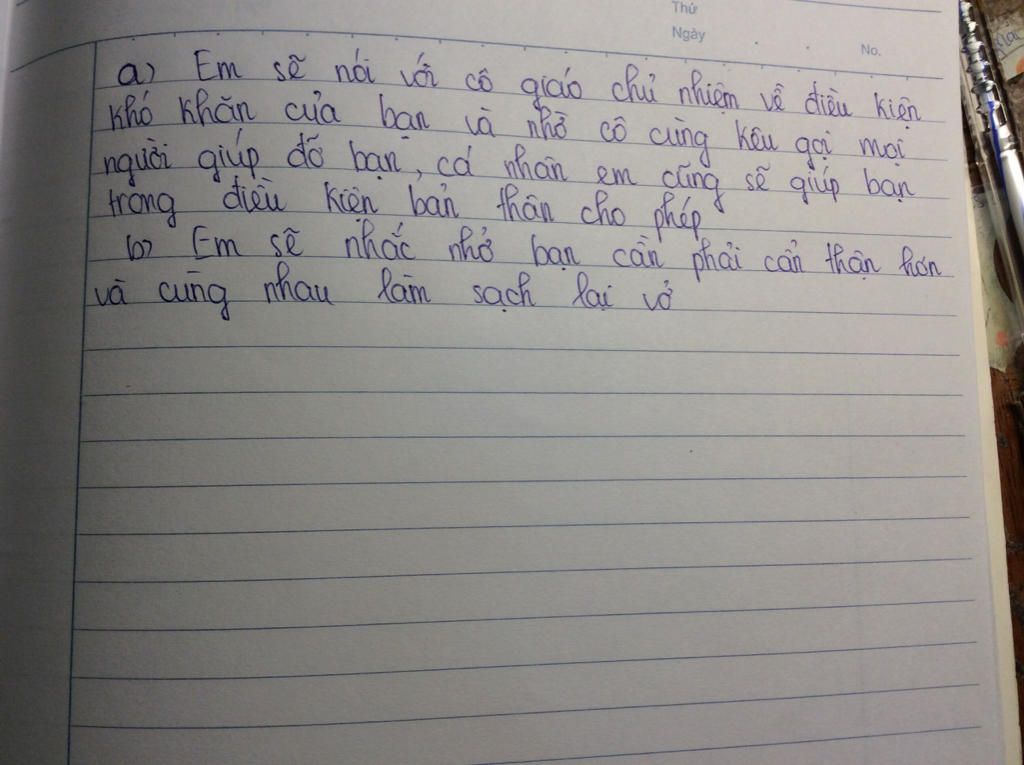 Thứ
Ngày
No.
a) Em sẽ nói với cô giáo chủ nhiệm về điều kiện
khó khăn của bạn và nhờ cô cùng kêu gọi mọi
người giúp đỡ bạn, cá nhân em cũng sẽ giúp bạn
trong điều kiện bản thân cho phép
b) Em sẽ nhắc nhở bạn cần phải cẩn thận hơn
và cùng nhau làm sạch lại vở